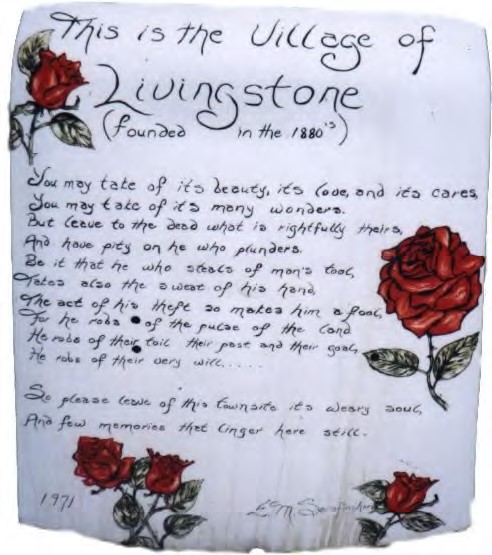 This is the Village of
Livingstone
(founded in the 1880's)
You may take of its beauty, its love, and its cares,
You may take of its many wonders.
But leave to the dead what is rightfully theirs,
And have pity on he who plunders.
Be it that he who steals of man's tool,
Takes also the sweat of his hand,
The act of his theft so makes him a fool,
For he robs of the pulse of the land
He robs of their toil their past and their goal,
He robs of their very will......
So please leave of this townsite its weary soul,
And few memories that linger here still.
1971 E.M.